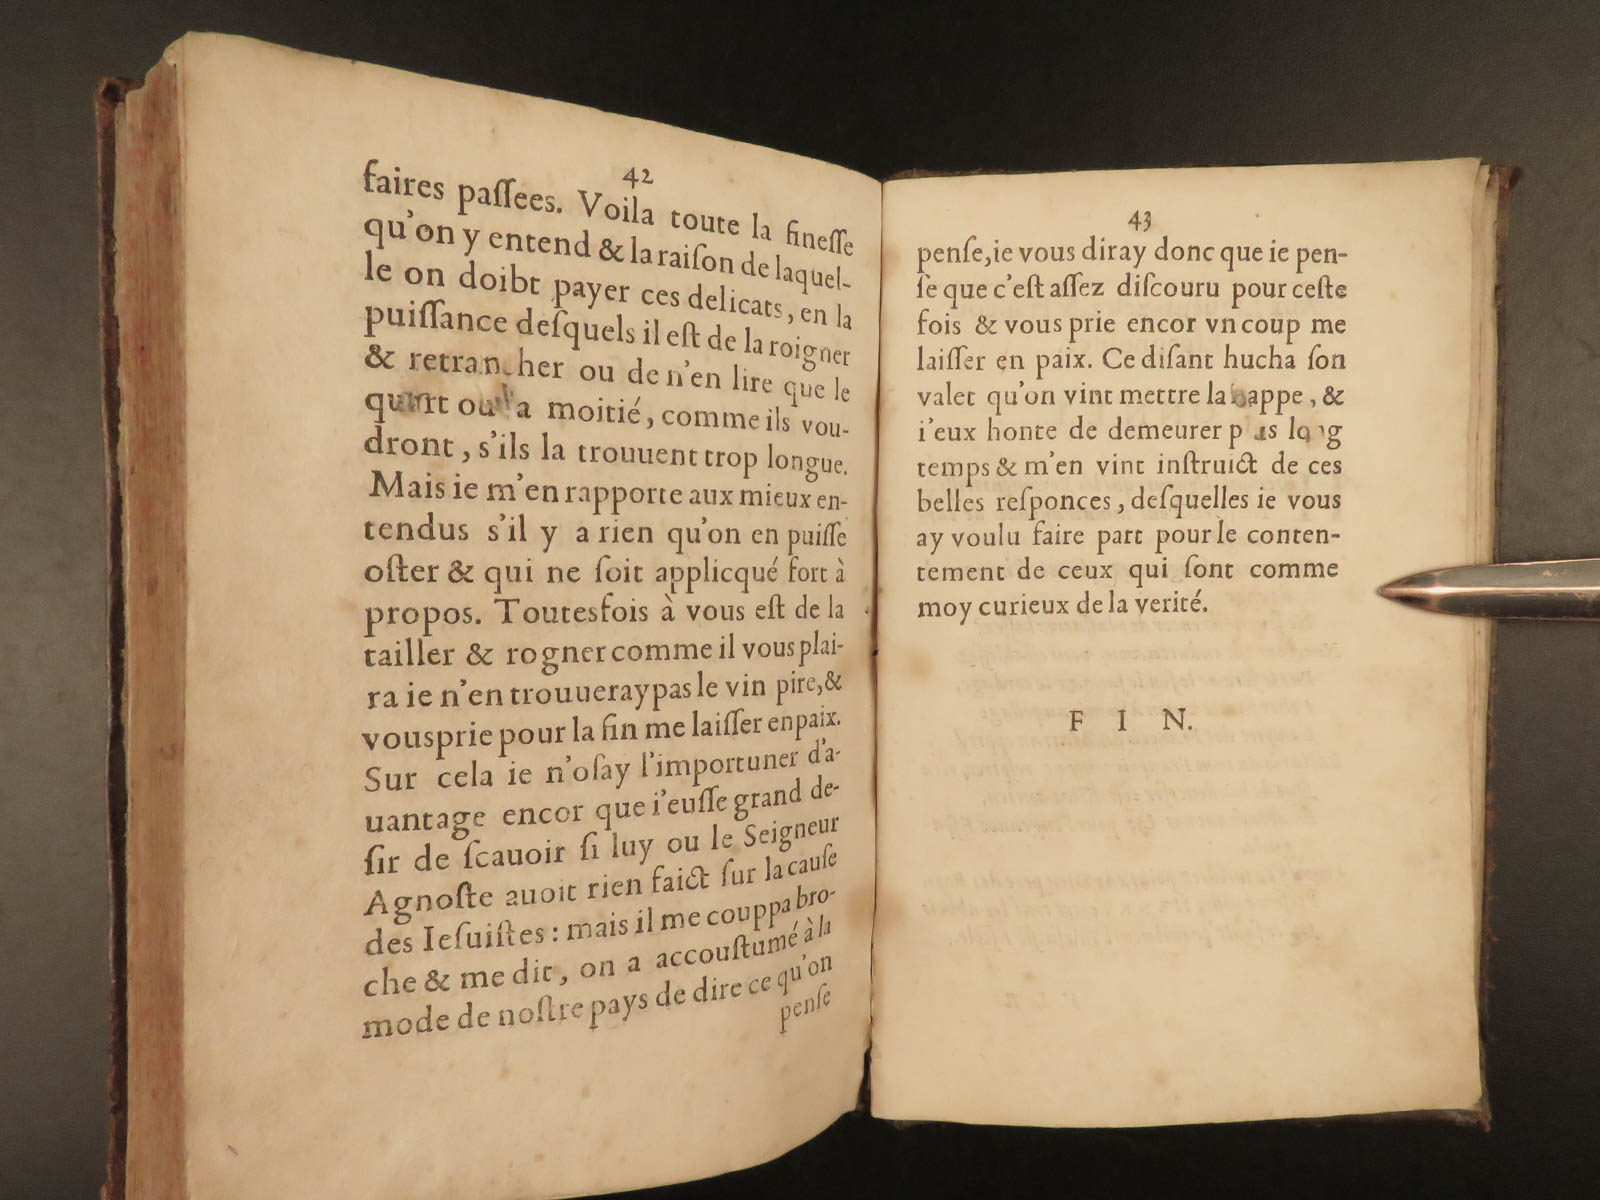 42
faires paſſees. Voila toute la fineſſe
qu'on y entend & la raiſon de laquel-
le on doibt payer ces delicats, en la
puiſſance deſquels il eſt de la roigner
& retrancher ou de n'en lire que le
quart ou la moitié, comme ils vou-
dront, s'ils la trouuent trop longue.
Mais ie m'en rapporte aux mieux en-
tendus s'il y a rien qu'on en puiſſe
oſter & qui ne ſoit applicqué fort à
propos. Toutesfois à vous eſt de la
tailler & rogner comme il vous plai-
ra ie n'en trouueray pas le vin pire, &
vous prie pour la fin me laiſſer en paix.
Sur cela ie n'oſay l'importuner d'a-
uantage encor que i'euſſe grand de-
ſir de ſcauoir ſi luy ou le Seigneur
Agnoſte auoit rien faict ſur la cauſe
des Ieſuiſtes : mais il me couppa bro-
che & me dit, on a accouſtumé à la
mode de noſtre pays de dire ce qu'on
penſe
43
penſe, ie vous diray donc que ie pen-
ſe que c'eſt aſſez diſcouru pour ceſte
fois & vous prie encor vn coup me
laiſſer en paix. Ce diſant hucha ſon
valet qu'on vint mettre la nappe, &
i'eux honte de demeurer plus long
temps & m'en vint inſtruict de ces
belles reſponces, deſquelles ie vous
ay voulu faire part pour le conten-
tement de ceux qui ſont comme
moy curieux de la verité.
F I N.